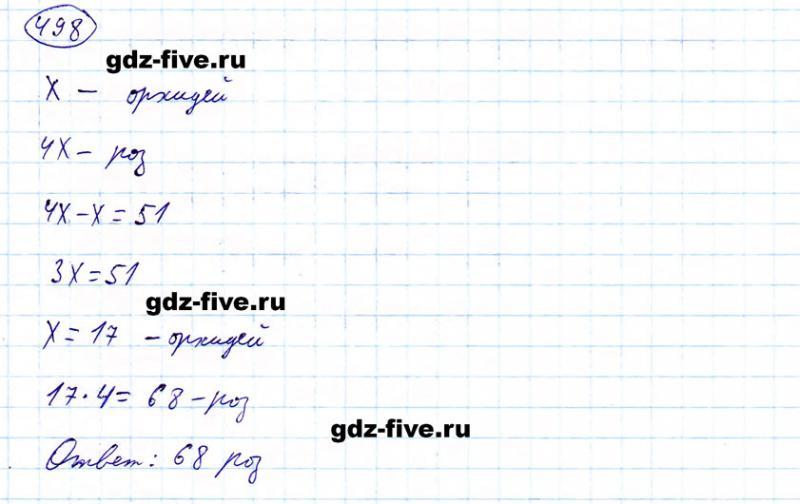 498
gdz-five.ru
X — орхидей
4X — роз
4X-X=51
3X=51
gdz-five.ru
X=17 — орхидей
17·4=68 — роз
gdz-five.ru
Ответ: 68 роз